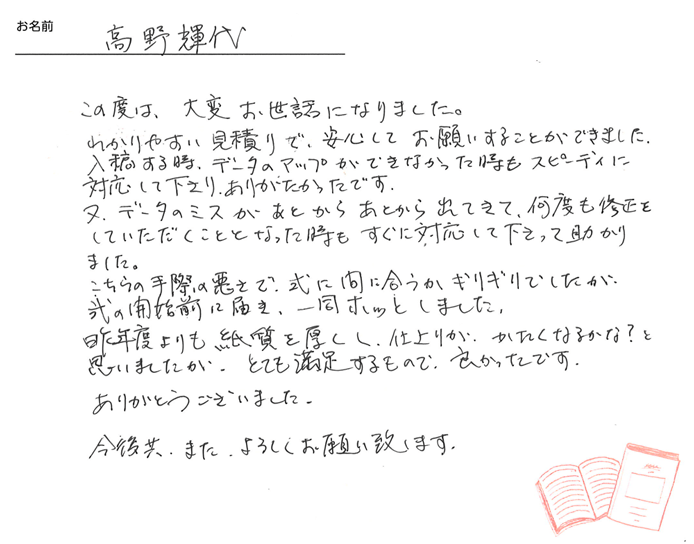 お名前
高野輝代
この度は、大変お世話になりました。
わかりやすい見積りで、安心してお願いすることができました.
入稿する時、データのアップができなかった時もスピーディに
対応して下さり、ありがたかったです.
又、データのミスがあとからあとから出てきて、何度も修正を
していただくこととなった時もすぐに対応して下さって助かり
ました。
こちらの手際の悪さで、式に間に合うかギリギリでしたが、
式の開始前に届き、一同ホッとしました.
昨年度よりも紙質を厚くし、仕上りが、かたくなるかな?と
思いましたが、とても満足するもので、良かったです.
ありがとうございました.
今後共、また、よろしくお願い致します.